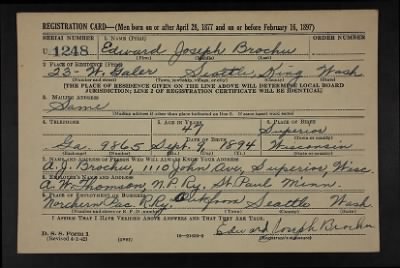 REGISTRATION CARD—(Men born on or after April 28, 1877 and on or before February 16, 1897)
SERIAL NUMBER 1. NAME (Print) ORDER NUMBER
U. 1248 Edward Joseph Brochu
(First) (Middle) (Last)
2. PLACE OF RESIDENCE (Print)
23- W. Galer Seattle King Wash
(Number and street) (Town, township, village, or city) (County) (State)
[THE PLACE OF RESIDENCE GIVEN ON THE LINE ABOVE WILL DETERMINE LOCAL BOARD
JURISDICTION; LINE 2 OF REGISTRATION CERTIFICATE WILL BE IDENTICAL]
3. MAILING ADDRESS
Same
[Mailing address if other than place indicated on line 2. If same insert word same]
4. TELEPHONE 5. AGE IN YEARS 6. PLACE OF BIRTH
47 Superior
DATE OF BIRTH (Town or county)
Ga. 9865 Sept. 9, 1894 Wisconsin
(Exchange) (Number) (Mo.) (Day) (Yr.) (State or country)
7. NAME AND ADDRESS OF PERSON WHO WILL ALWAYS KNOW YOUR ADDRESS
A. J. Brochu, 1110 John Ave, Superior, Wisc.
8. EMPLOYER'S NAME AND ADDRESS
A. W. Thomson, N.P. Ry. St Paul Minn.
9. PLACE OF EMPLOYMENT OR BUSINESS
Northern Pac. R.Ry. Seattle Wash
(Number and street or R. F. D. number) (Town) (County) (State)
I AFFIRM THAT I HAVE VERIFIED ABOVE ANSWERS AND THAT THEY ARE TRUE.
D. S. S. Form 1
(Revised 4-1-42) (over) Edward Joseph Brochu
(Registrant's signature)